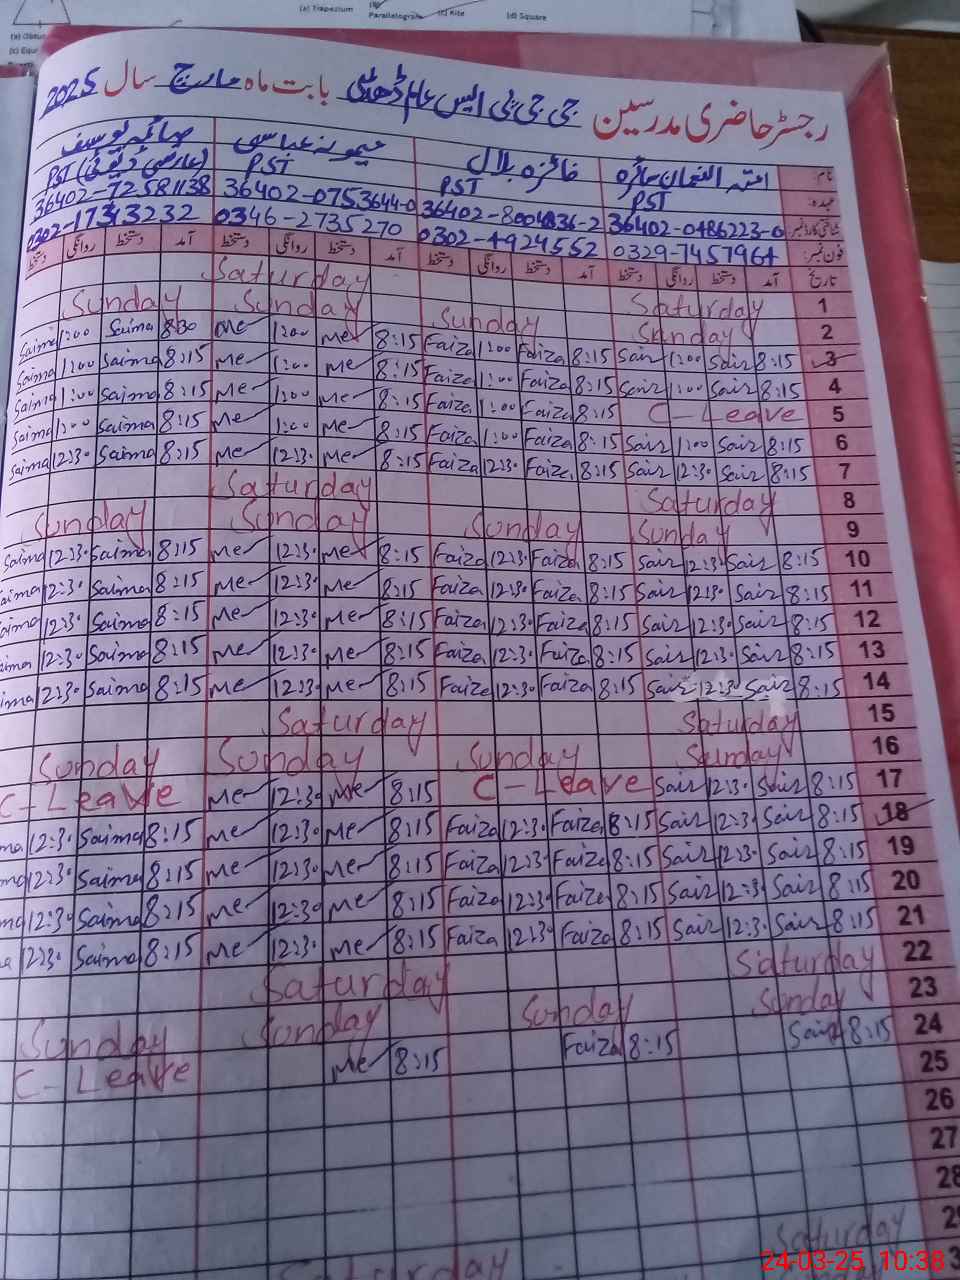 (a) Trapezium
Parallelogram
(c) Kite
(d) Square
رجسٹر حاضری مدرسین جی جی پی ایس بابت ماہ مارچ سال 2025
نام: فائزہ بلال میمونہ عباسی صائمہ یوسف
عہدہ: PST PST PST PST (عارضی ڈیوٹی)
شناختی کارڈ نمبر: 36402-0486223-0 36402-8004836-2 36402-0753644-0 36402-7258138
فون نمبر: 0329-7457964 0302-4924552 0346-2735270 0302-17343232
تاریخ آمد دستخط روانگی دستخط آمد دستخط روانگی دستخط آمد دستخط روانگی دستخط آمد دستخط روانگی دستخط
1 Saturday Saturday
2 Sunday Sunday Sunday Sunday
3 8:15 Sair 1:00 Sair 8:15 Faiza 1:00 Faiza 8:15 Me 1:00 Me 8:30 Saima 1:00 Saima
4 8:15 Sair 1:00 Sair 8:15 Faiza 1:00 Faiza 8:15 Me 1:00 Me 8:15 Saima 1:00 Saima
5 C-Leave 8:15 Faiza 1:00 Faiza 8:15 Me 1:00 Me 8:15 Saima 1:00 Saima
6 8:15 Sair 1:00 Sair 8:15 Faiza 1:00 Faiza 8:15 Me 1:00 Me 8:15 Saima 1:00 Saima
7 8:15 Sair 12:30 Sair 8:15 Faiza 12:30 Faiza 8:15 Me 12:30 Me 8:15 Saima 12:30 Saima
8 Saturday Saturday
9 Sunday Sunday Sunday Sunday
10 8:15 Sair 12:30 Sair 8:15 Faiza 12:30 Faiza 8:15 Me 12:30 Me 8:15 Saima 12:30 Saima
11 8:15 Sair 12:30 Sair 8:15 Faiza 12:30 Faiza 8:15 Me 12:30 Me 8:15 Saima 12:30 aima
12 8:15 Sair 12:30 Sair 8:15 Faiza 12:30 Faiza 8:15 Me 12:30 Me 8:15 Saima 12:30 aima
13 8:15 Sair 12:30 Sair 8:15 Faiza 12:30 Faiza 8:15 Me 12:30 Me 8:15 Saima 12:30 ima
14 8:15 Sair 12:30 Sair 8:15 Faiza 12:30 Faiza 8:15 Me 12:30 Me 8:15 Saima 12:30 ima
15 Saturday Saturday
16 Sunday Sunday Sunday Sunday
17 8:15 Sair 12:30 Sair C-Leave 8:15 Me 12:30 Me C-Leave
18 8:15 Sair 12:30 Sair 8:15 Faiza 12:30 Faiza 8:15 Me 12:30 Me 8:15 Saima 12:30 ma
19 8:15 Sair 12:30 Sair 8:15 Faiza 12:30 Faiza 8:15 Me 12:30 Me 8:15 Saima 12:30 ma
20 8:15 Sair 12:30 Sair 8:15 Faiza 12:30 Faiza 8:15 Me 12:30 Me 8:15 Saima 12:30 ma
21 8:15 Sair 12:30 Sair 8:15 Faiza 12:30 Faiza 8:15 Me 12:30 Me 8:15 Saima 12:30 a
22 Saturday Saturday
23 Sunday Sunday Sunday Sunday
24 8:15 Sair 8:15 Faiza 8:15 Me C-Leave
25
26
27
28
29 Saturday Saturday
24-03-25 10:38